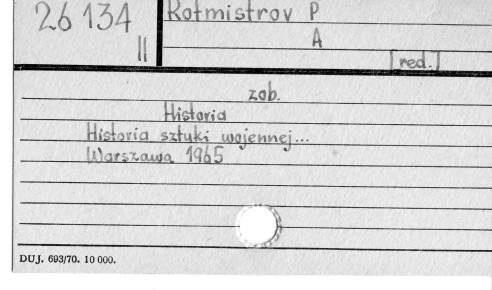 26 134
II
Rotmistrov P
A
[red.]
zob.
Historia
Historia sztuki wojennej...
Warszawa 1965
DUJ. 693/70. 10 000.